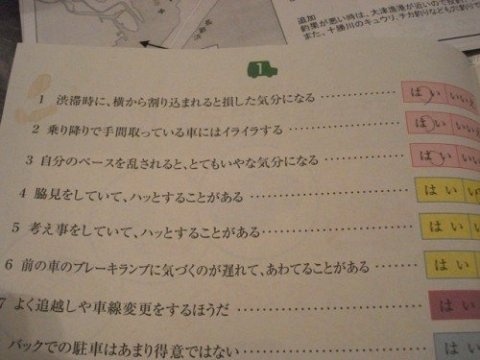 追加
釣果が悪い時は、大津漁港が近いので
また、十勝川のキュウリ、チカ釣りなども
1
1 渋滞時に、横から割り込まれると損した気分になる はい いいえ
2 乗り降りで手間取っている車にはイライラする はい いいえ
3 自分のペースを乱されると、とてもいやな気分になる はい いいえ
4 脇見をしていて、ハッとすることがある はい い
5 考え事をしていて、ハッとすることがある はい い
6 前の車のブレーキランプに気づくのが遅れて、あわてることがある はい い
7 よく追越しや車線変更をするほうだ はい
バックでの駐車はあまり得意ではない はい